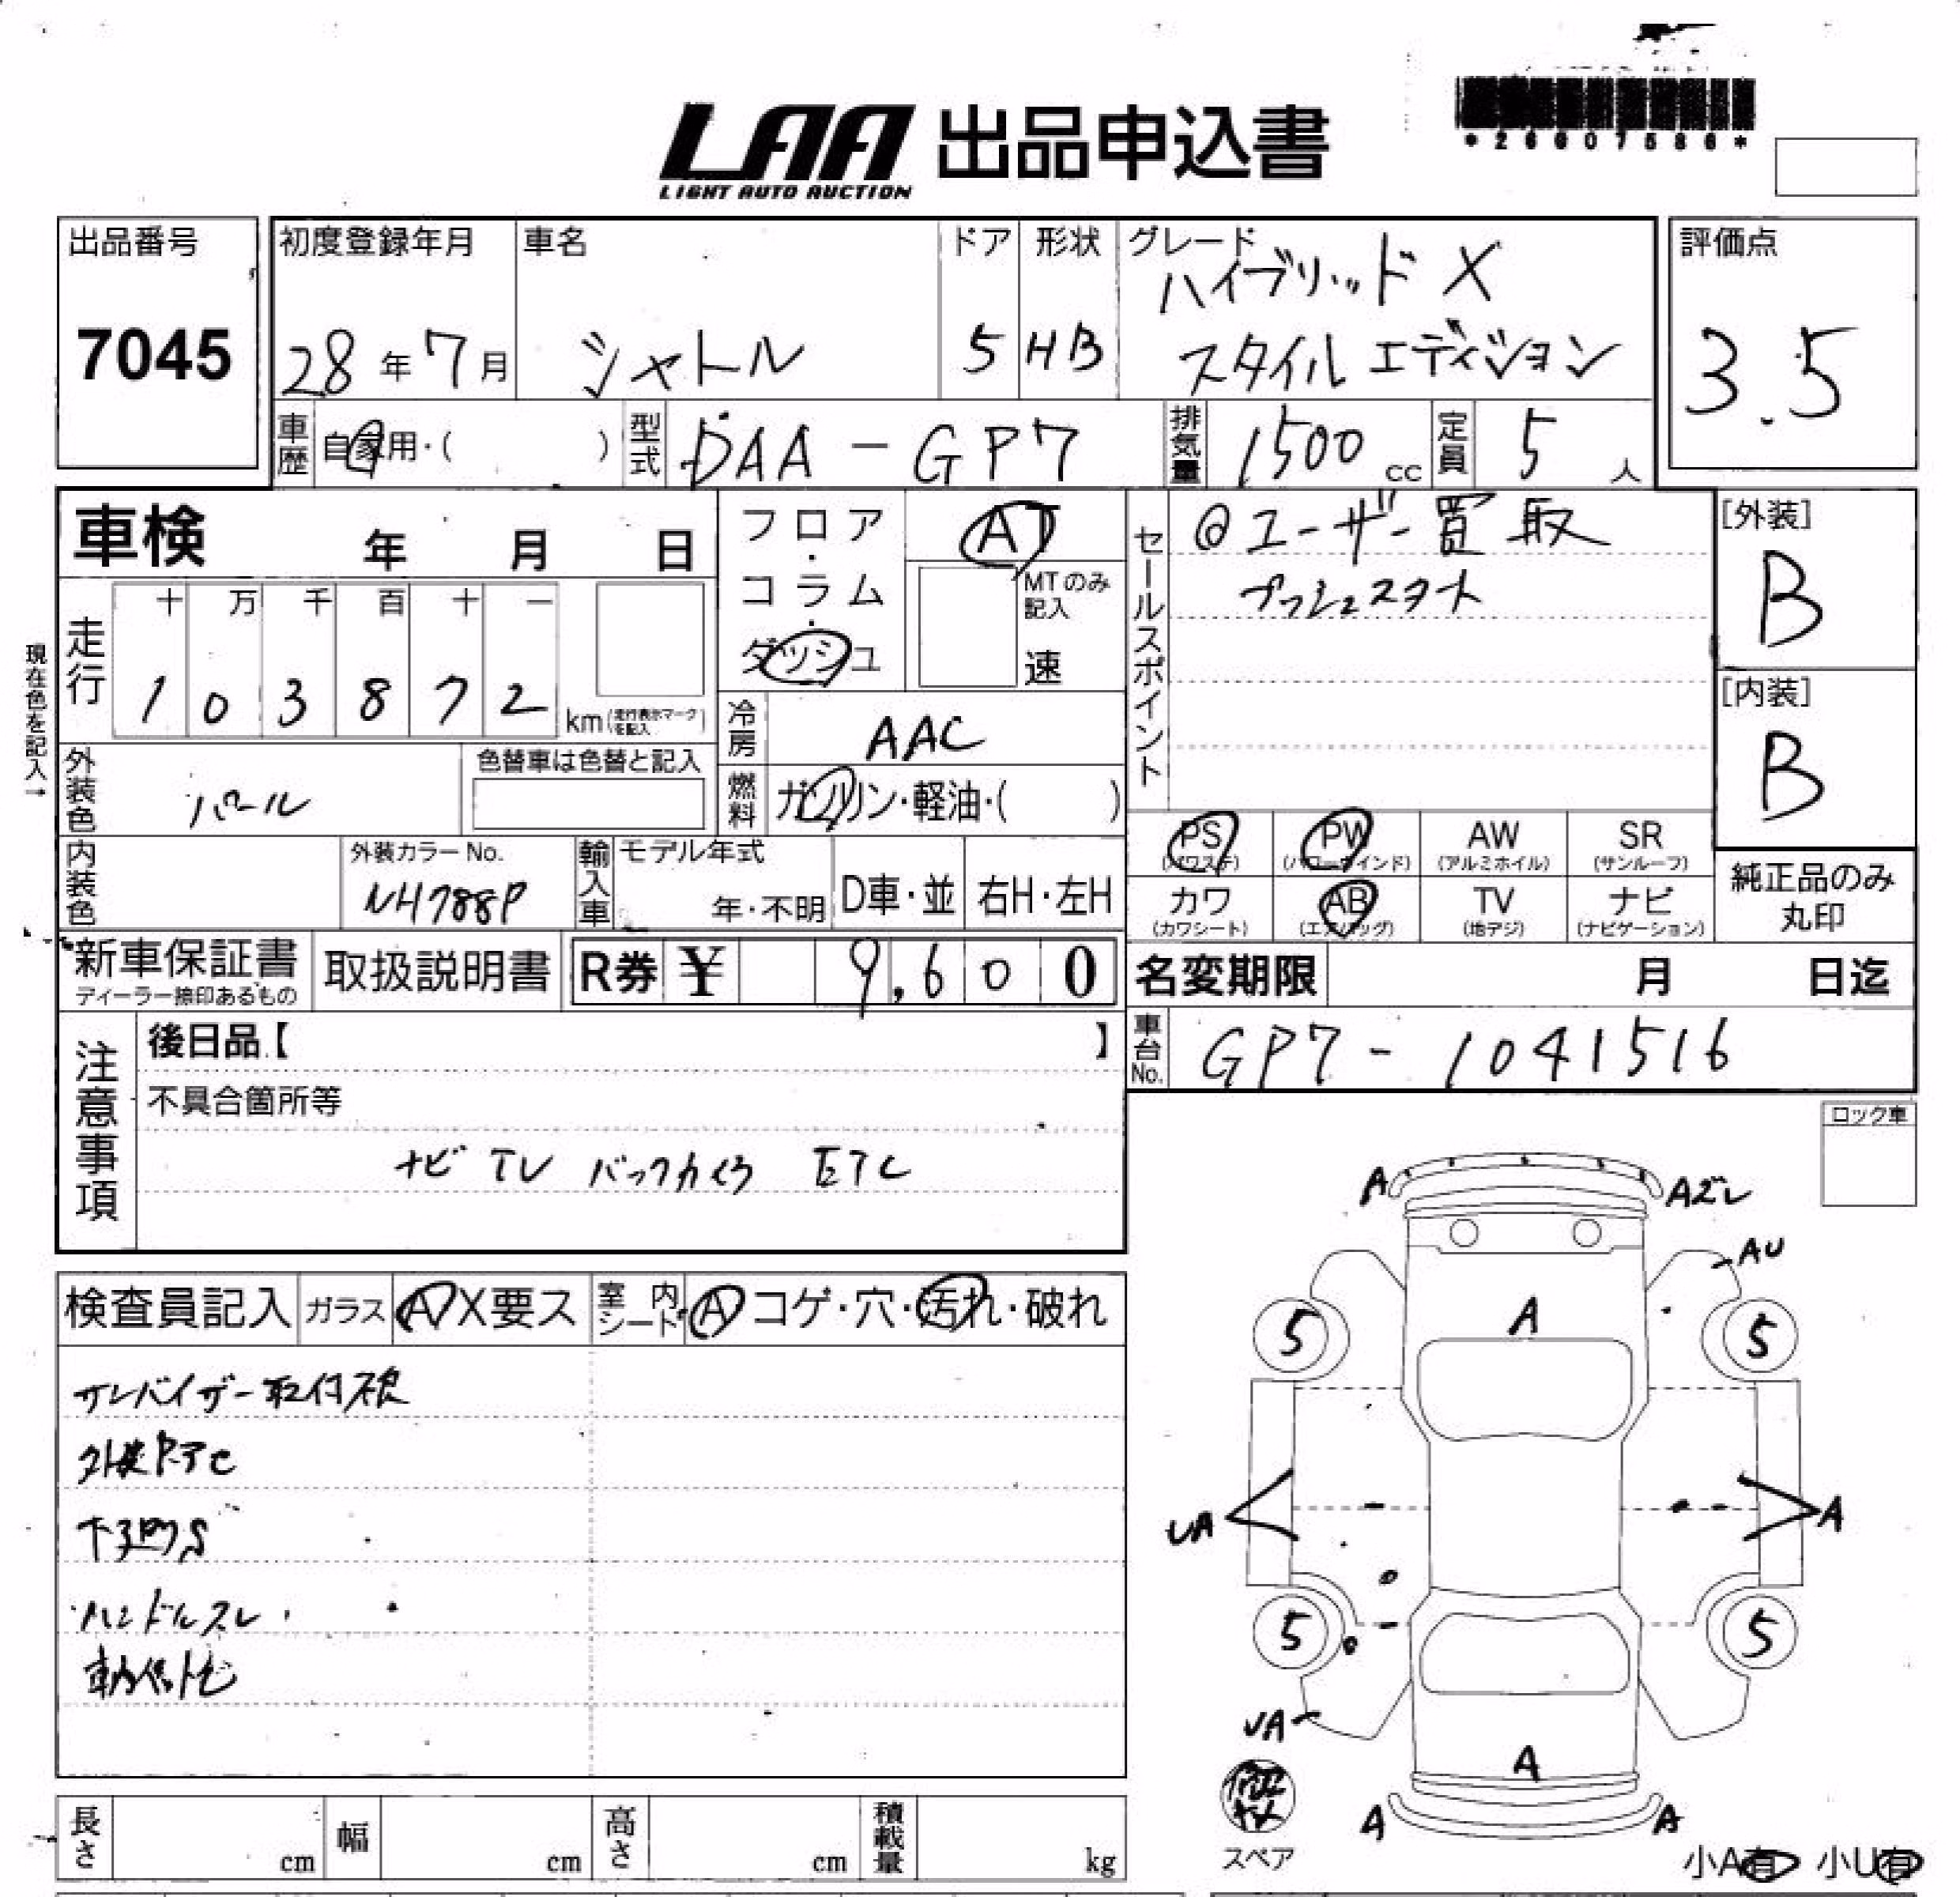 *26007586*
LAA 出品申込書
LIGHT AUTO AUCTION
出品番号 7045
初度登録年月 28年7月
車名 シャトル
ドア 5
形状 HB
グレード ハイブリッド X
スタイルエディション
評価点 3.5
車歴 自家用・( )
型式 DAA-GP7
排気量 1500cc
定員 5人
車検 年 月 日
フロア・コラム・ダッシュ
AT
MTのみ記入
速
セールスポイント
@ユーザー買取
プッシュスタート
[外装] B
[内装] B
現在色を記入→
走行 十 万 千 百 十 一
1 0 3 8 7 2 km (走行表示マークを記入)
冷房 AAC
外装色 パール
色替車は色替と記入
燃料 ガソリン・軽油・( )
PS (パワステ)
PW (パワーウインド)
AW (アルミホイル)
SR (サンルーフ)
カワ (カワシート)
AB (エアバッグ)
TV (地デジ)
ナビ (ナビゲーション)
純正品のみ丸印
内装色
外装カラーNo. NH788P
輸入車 モデル年式 年・不明
D車・並
右H・左H
新車保証書
ディーラー捺印あるもの
取扱説明書
R券 ¥ 9,600
名変期限 月 日迄
車台No. GP7-1041516
注意事項
後日品【 】
不具合箇所等
ナビ TV バックカメラ ETC
ロック車
検査員記入
ガラス A X要ス
室内シート A コゲ・穴・汚れ・破れ
サンバイザー取付不良
ハンドルスレ
A Aズレ
AU
A
5 5
UA A
5 5
UA
A
A A
スペア
小A有 小U有
長さ cm
幅 cm
高さ cm
積載量 kg